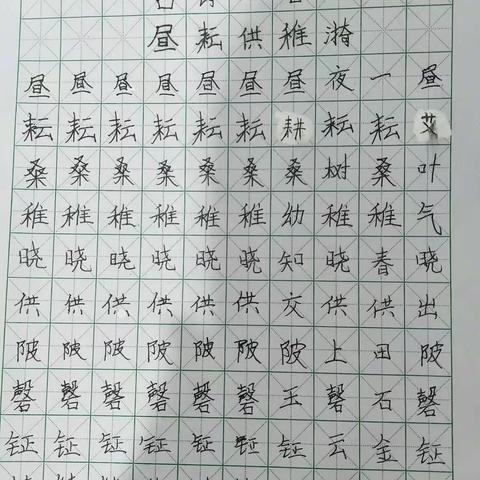 昼耘供稚漪
昼昼昼昼昼昼昼夜一昼
耘耘耘耘耘耘耕耘耘艾
桑桑桑桑桑桑桑树桑叶
稚稚稚稚稚稚幼稚稚气
晓晓晓晓晓晓知晓春晓
供供供供供供交供供出
陂陂陂陂陂陂陂上田陂
磬磬磬磬磬磬玉磬石磬
钲钲钲钲钲钲钲云金钲